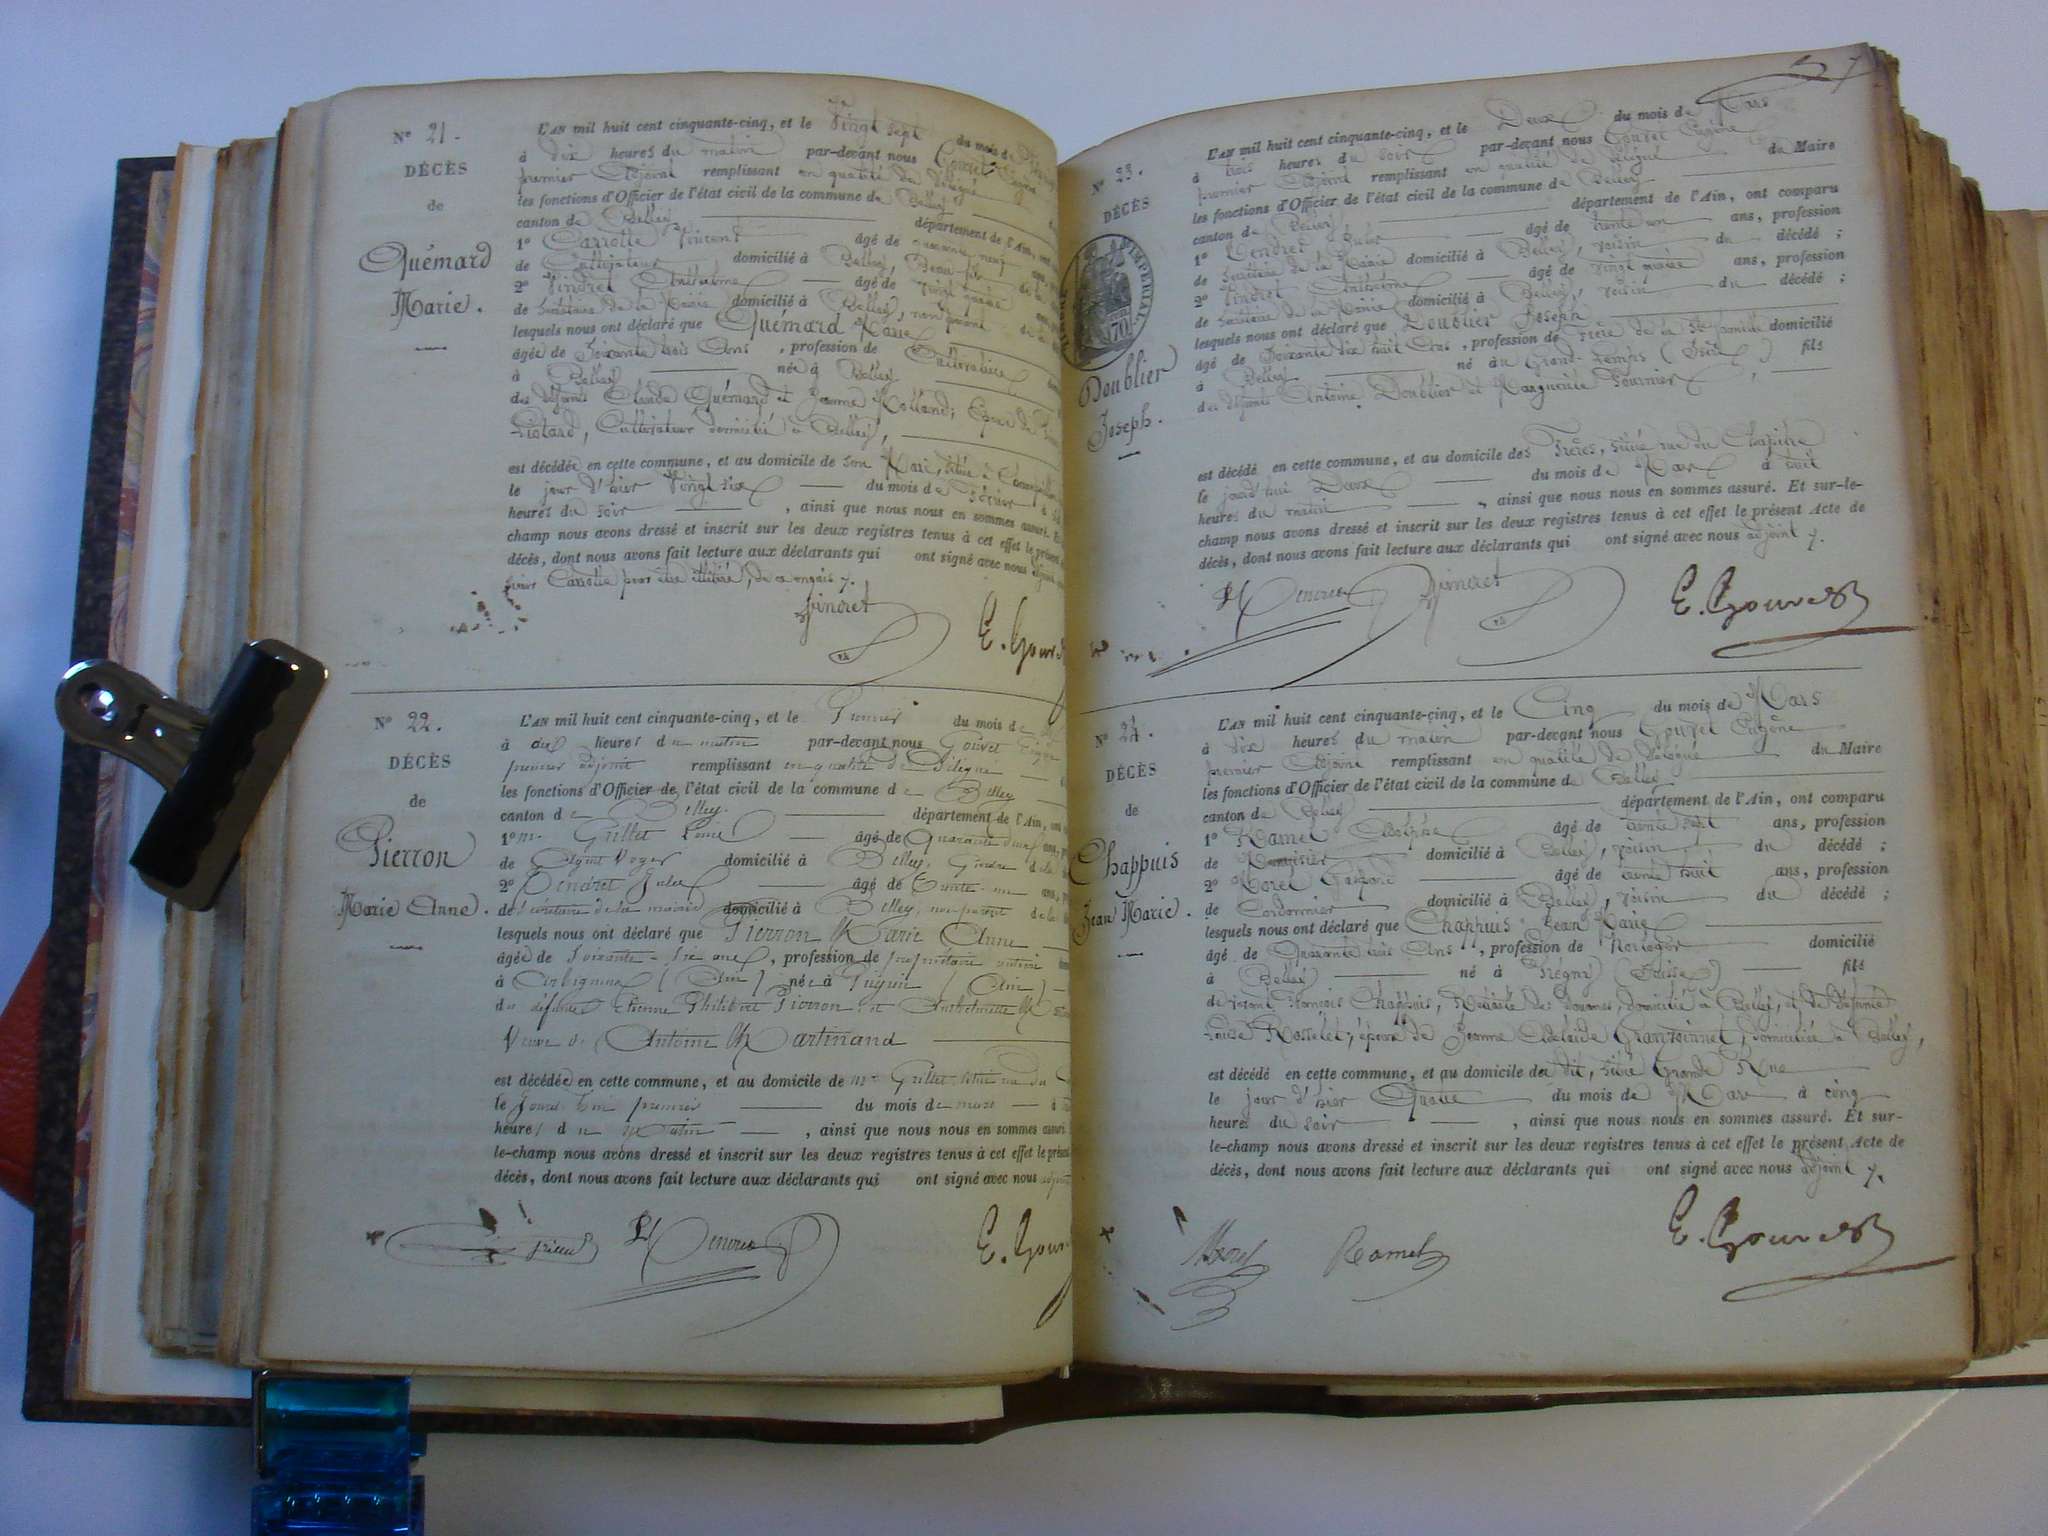 N° 21.
DÉCÈS
de
Quémard
Marie.
L'AN mil huit cent cinquante-cinq, et le Vingt sept du mois de
à dix heures du matin par-devant nous Gouvet Eugène
premier Adjoint remplissant en qualité de Délégué
les fonctions d'Officier de l'état civil de la commune de Belley
canton de Belley département de l'Ain,
1° Carrotte Vincent âgé de
de Cultivateur domicilié à Belley, Beau-frère
2° Vindret Anthelme âgé de vingt quatre
de Secrétaire de la Mairie domicilié à Belley, non parent
lesquels nous ont déclaré que Quémard Marie
âgée de Soixante trois Ans, profession de Cultivatrice
à Belley née à Belley
des défunts Claude Quémard et Jeanne Rolland; Epouse de
Liotard, Cultivateur domicilié à Belley,
est décédée en cette commune, et au domicile de son Mari, située à
le jour d'hier Vingt six du mois de Février à
heures du soir, ainsi que nous nous en sommes assuré. Et
champ nous avons dressé et inscrit sur les deux registres tenus à cet effet le présent
décès, dont nous avons fait lecture aux déclarants qui ont signé avec nous
Carrotte pour être illitéré, de ce enquis
Vindret
E. Gouvet
N° 22.
DÉCÈS
de
Pierron
Marie Anne.
L'AN mil huit cent cinquante-cinq, et le Premier du mois de
à dix heures du matin par-devant nous Gouvet Eugène
premier adjoint remplissant en qualité de Délégué
les fonctions d'Officier de l'état civil de la commune de Belley
canton de Belley. département de l'Ain,
1° mr. Grillet Louis âgé de Quarante deux ans,
de Agent Voyer domicilié à Belley, Gendre de la
2° Dendret Jules âgé de Trente-un ans,
de Secrétaire de la mairie domicilié à Belley, non parent de la
lesquels nous ont déclaré que Pierron Marie Anne
âgée de Soixante-six ans, profession de propriétaire rentière
à (Ain) née à (Ain)
des défunts Etienne Philibert Pierron et Anthelmette
Veuve de Antoine Martinand
est décédée en cette commune, et au domicile de mr Grillet située rue du
le Jourd'hui premier du mois de mars à
heures du Matin, ainsi que nous nous en sommes assuré
le-champ nous avons dressé et inscrit sur les deux registres tenus à cet effet le présent
décès, dont nous avons fait lecture aux déclarants qui ont signé avec nous adjoint
E. Gouvet
N° 23.
DÉCÈS
IMPERIAL
70
Doublier
Joseph.
L'AN mil huit cent cinquante-cinq, et le Deux du mois de Mars
à trois heures du soir par-devant nous Gouvet Eugène
premier Adjoint remplissant en qualité de Délégué du Maire
les fonctions d'Officier de l'état civil de la commune de Belley
canton de Belley département de l'Ain, ont comparu
1° Dendret Jules âgé de trente un ans, profession
de Secrétaire de la Mairie domicilié à Belley, voisin du décédé ;
2° Vindret Anthelme âgé de vingt quatre ans, profession
de Secrétaire de la Mairie domicilié à Belley, voisin du décédé ;
lesquels nous ont déclaré que Doublier Joseph
âgé de Soixante dix huit Ans, profession de Frère de la Ste famille domicilié
à Belley né au Grand-Temps (Isère) fils
des défunts Antoine Doublier et Marguerite Fournier,
est décédé en cette commune, et au domicile des Frères, située rue du Chapitre
le jourd'hui Deux du mois de Mars à huit
heures du matin, ainsi que nous nous en sommes assuré. Et sur-le-
champ nous avons dressé et inscrit sur les deux registres tenus à cet effet le présent Acte de
décès, dont nous avons fait lecture aux déclarants qui ont signé avec nous adjoint
Vindret
E. Gouvet
N° 24.
DÉCÈS
de
Chappuis
Jean Marie.
L'AN mil huit cent cinquante-cinq, et le Cinq du mois de Mars
à dix heures du matin par-devant nous Gouvet Eugène
premier Adjoint remplissant en qualité de Délégué du Maire
les fonctions d'Officier de l'état civil de la commune de Belley
canton de Belley département de l'Ain, ont comparu
1° Ramel Adolphe âgé de trente sept ans, profession
de Menuisier domicilié à Belley, voisin du décédé ;
2° Morel Gaspard âgé de trente huit ans, profession
de Cordonnier domicilié à Belley, voisin du décédé ;
lesquels nous ont déclaré que Chappuis Jean Marie
âgé de Quarante trois Ans, profession de Horloger domicilié
à Belley né à (Suisse) fils
de vivant François Chappuis, Retraité des Douanes, domicilié à Belley, et de défunte
Louise Rosselet; époux de Jeanne Adélaïde domiciliée à Belley,
est décédé en cette commune, et au domicile du dit, située Grande Rue
le jour d'hier Quatre du mois de Mars à cinq
heures du soir, ainsi que nous nous en sommes assuré. Et sur-
le-champ nous avons dressé et inscrit sur les deux registres tenus à cet effet le présent Acte de
décès, dont nous avons fait lecture aux déclarants qui ont signé avec nous adjoint
Morel
Ramel
E. Gouvet